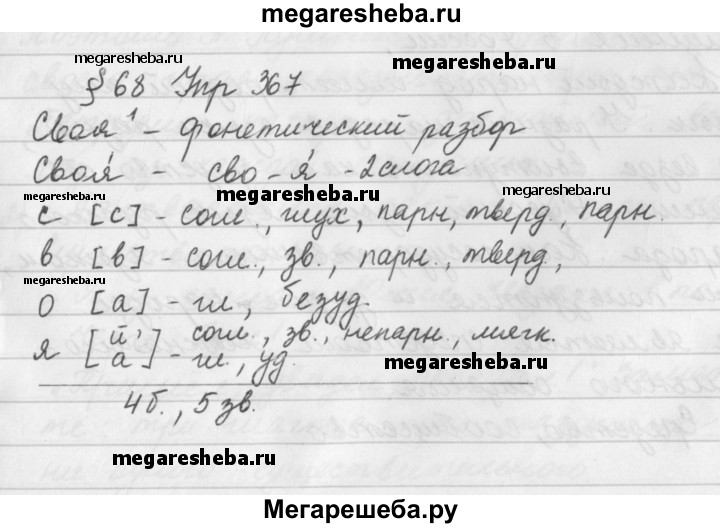 megaresheba.ru
megaresheba.ru
megaresheba.ru
§ 68 Упр 367
Своя¹ - фонетический разбор
Своя́ - сво - я́ - 2 слога
megaresheba.ru
megaresheba.ru
megaresheba.ru
с [с] - согл., глух, парн, тверд., парн.
в [в] - согл., зв., парн., тверд,
megaresheba.ru
о [а] - гл., безуд.
я [й'] согл., зв., непарн., мягк.
[а] - гл., уд.
megaresheba.ru
4 б., 5 зв.
megaresheba.ru
Мегарешеба.ру